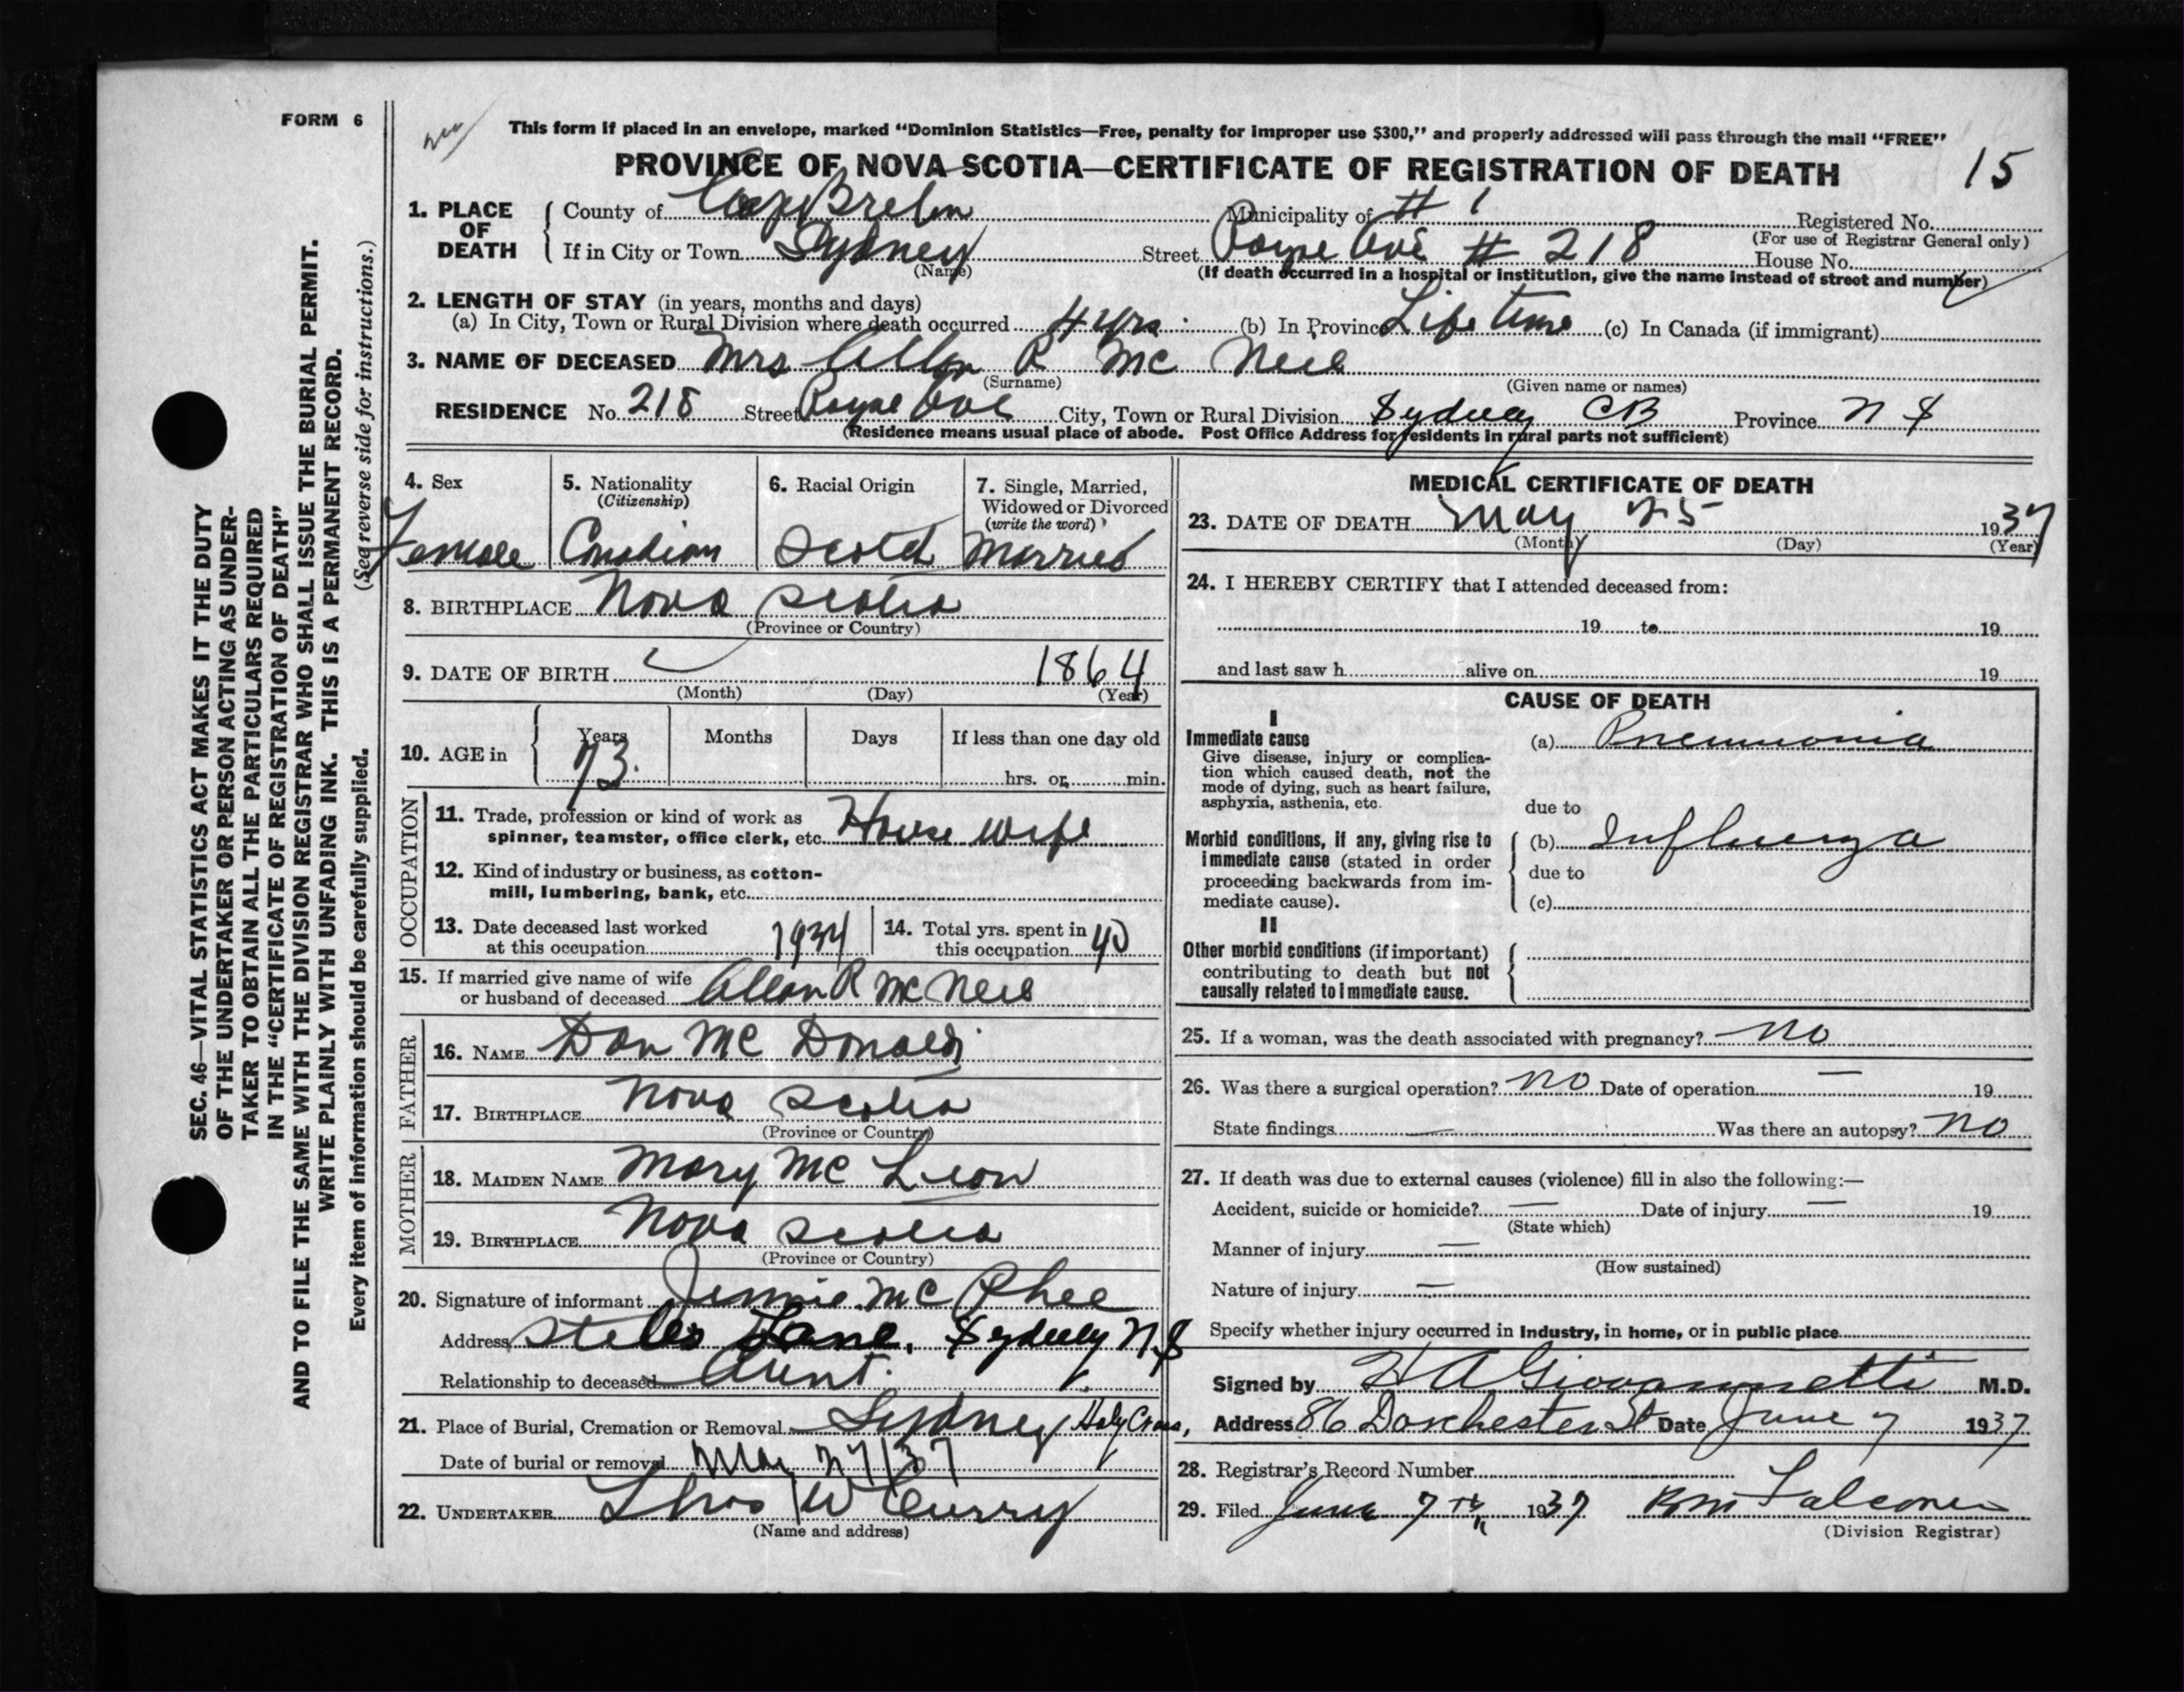 FORM 6
This form if placed in an envelope, marked "Dominion Statistics—Free, penalty for improper use $300," and properly addressed will pass through the mail "FREE"
PROVINCE OF NOVA SCOTIA—CERTIFICATE OF REGISTRATION OF DEATH
15
1. PLACE OF DEATH
County of Cape Breton Municipality of # 1 Registered No.
(For use of Registrar General only)
If in City or Town Sydney Street Ave # 218 House No.
(Name) (If death occurred in a hospital or institution, give the name instead of street and number)
2. LENGTH OF STAY (in years, months and days)
(a) In City, Town or Rural Division where death occurred 4 yrs (b) In Province Life time (c) In Canada (if immigrant)
3. NAME OF DECEASED Mrs Allan R Mc Neil
(Surname) (Given name or names)
RESIDENCE No. 218 Street Ave City, Town or Rural Division Sydney CB Province N S
(Residence means usual place of abode. Post Office Address for residents in rural parts not sufficient)
SEC. 46—VITAL STATISTICS ACT MAKES IT THE DUTY
OF THE UNDERTAKER OR PERSON ACTING AS UNDER-
TAKER TO OBTAIN ALL THE PARTICULARS REQUIRED
IN THE "CERTIFICATE OF REGISTRATION OF DEATH"
AND TO FILE THE SAME WITH THE DIVISION REGISTRAR WHO SHALL ISSUE THE BURIAL PERMIT.
WRITE PLAINLY WITH UNFADING INK. THIS IS A PERMANENT RECORD.
Every item of information should be carefully supplied. (See reverse side for instructions.)
4. Sex
Female
5. Nationality
(Citizenship)
Canadian
6. Racial Origin
Scotch
7. Single, Married,
Widowed or Divorced
(write the word)
Married
8. BIRTHPLACE Nova Scotia
(Province or Country)
9. DATE OF BIRTH 1864
(Month) (Day) (Year)
10. AGE in Years Months Days If less than one day old
73. hrs. or min.
OCCUPATION
11. Trade, profession or kind of work as
spinner, teamster, office clerk, etc. House wife
12. Kind of industry or business, as cotton-
mill, lumbering, bank, etc.
13. Date deceased last worked
at this occupation 1934
14. Total yrs. spent in
this occupation 40
15. If married give name of wife
or husband of deceased Allan R McNeil
FATHER
16. NAME Dan McDonald
17. BIRTHPLACE Nova Scotia
(Province or Country)
MOTHER
18. MAIDEN NAME Mary Mc Leon
19. BIRTHPLACE Nova Scotia
(Province or Country)
20. Signature of informant Jennie McPhee
Address Lane, Sydney N S
Relationship to deceased Aunt.
21. Place of Burial, Cremation or Removal Sydney Holy Cross,
Date of burial or removal May 27/37
22. UNDERTAKER Thos W Curry
(Name and address)
MEDICAL CERTIFICATE OF DEATH
23. DATE OF DEATH May 25 1937
(Month) (Day) (Year)
24. I HEREBY CERTIFY that I attended deceased from:
19 to 19
and last saw h alive on 19
CAUSE OF DEATH
I
Immediate cause
Give disease, injury or complica-
tion which caused death, not the
mode of dying, such as heart failure,
asphyxia, asthenia, etc.
(a) Pneumonia
due to
Morbid conditions, if any, giving rise to
immediate cause (stated in order
proceeding backwards from im-
mediate cause).
(b) Influenza
due to
(c)
II
Other morbid conditions (if important)
contributing to death but not
causally related to immediate cause.
25. If a woman, was the death associated with pregnancy? No
26. Was there a surgical operation? No Date of operation — 19
State findings — Was there an autopsy? No
27. If death was due to external causes (violence) fill in also the following:—
Accident, suicide or homicide? — Date of injury — 19
(State which)
Manner of injury —
(How sustained)
Nature of injury —
Specify whether injury occurred in Industry, in home, or in public place
Signed by H A Giovannetti M.D.
Address 86 Dorchester St Date June 7 1937
28. Registrar's Record Number
29. Filed June 7th 1937 Falconer
(Division Registrar)